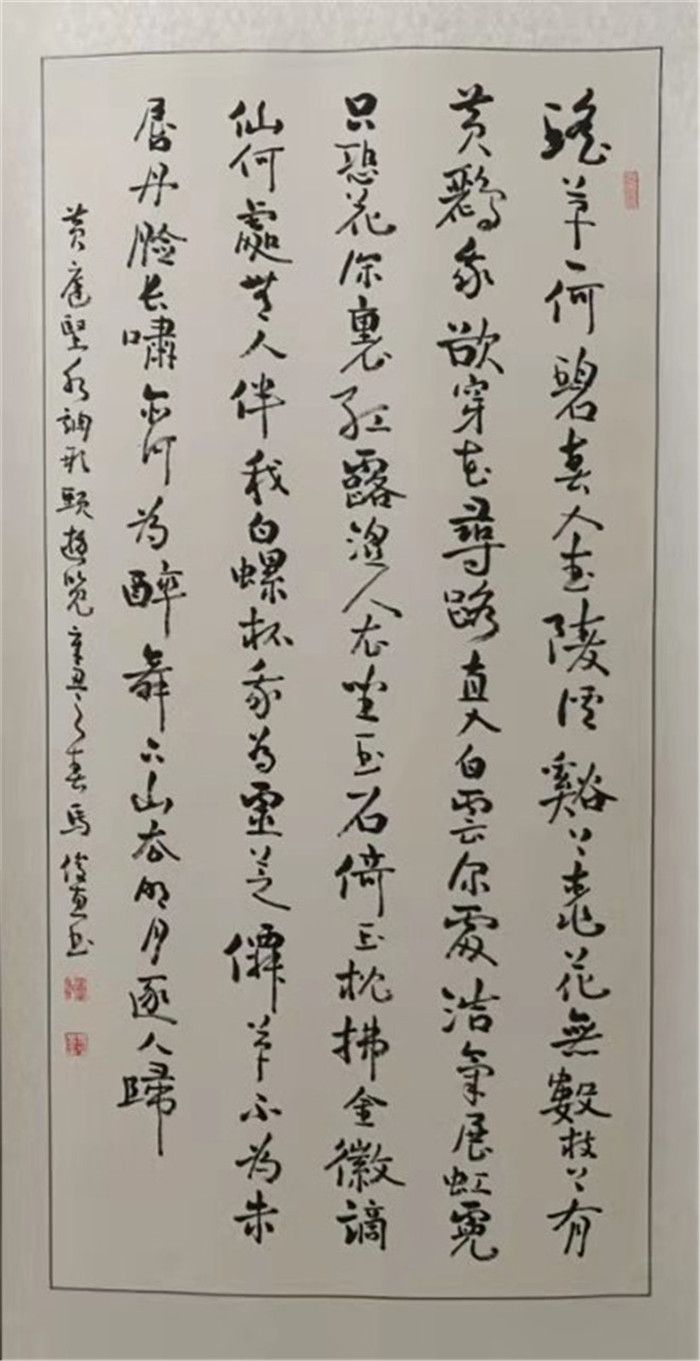 瑤草一何碧春入武陵溪谿上桃花無數枝上有
黃鸝我欲穿花尋路直入白雲深處浩氣展虹霓
只恐花深裏紅露濕人衣坐玉石倚玉枕拂金徽謫
仙何處無人伴我白螺杯我為靈芝僊草不為朱
唇丹臉長嘯亦何為醉舞下山去明月逐人歸
黃庭堅水調歌頭遊覽辛丑之春馬俊書